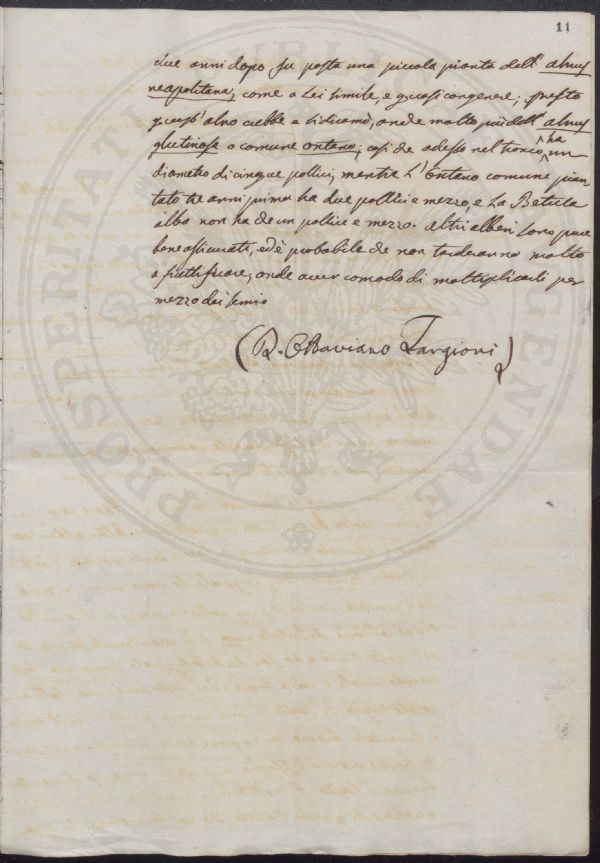 11
due anni dopo fu posta una piccola pianta dell' alnus
neapolitana, come a Lei simile, e quasi congenere; questo
quest' alno crebbe a bidicamò, onde molto più dell' alnus
glutinosa o comune ontano; così che adesso nel tronco ha un
diametro di cinque pollici, mentre l'Ontano comune pian-
tato tre anni prima ha due pollici e mezzo, e la Betula
alba non ha che un pollice e mezzo. altri alberi sono pure
bene assicurati, ed è probabile che non tarderanno molto
a fruttificare, onde aver comodo di moltiplicarli per
mezzo dei semi.
(D. Ottaviano Targioni)
PROSPERITATI PUBLICAE AUGENDAE